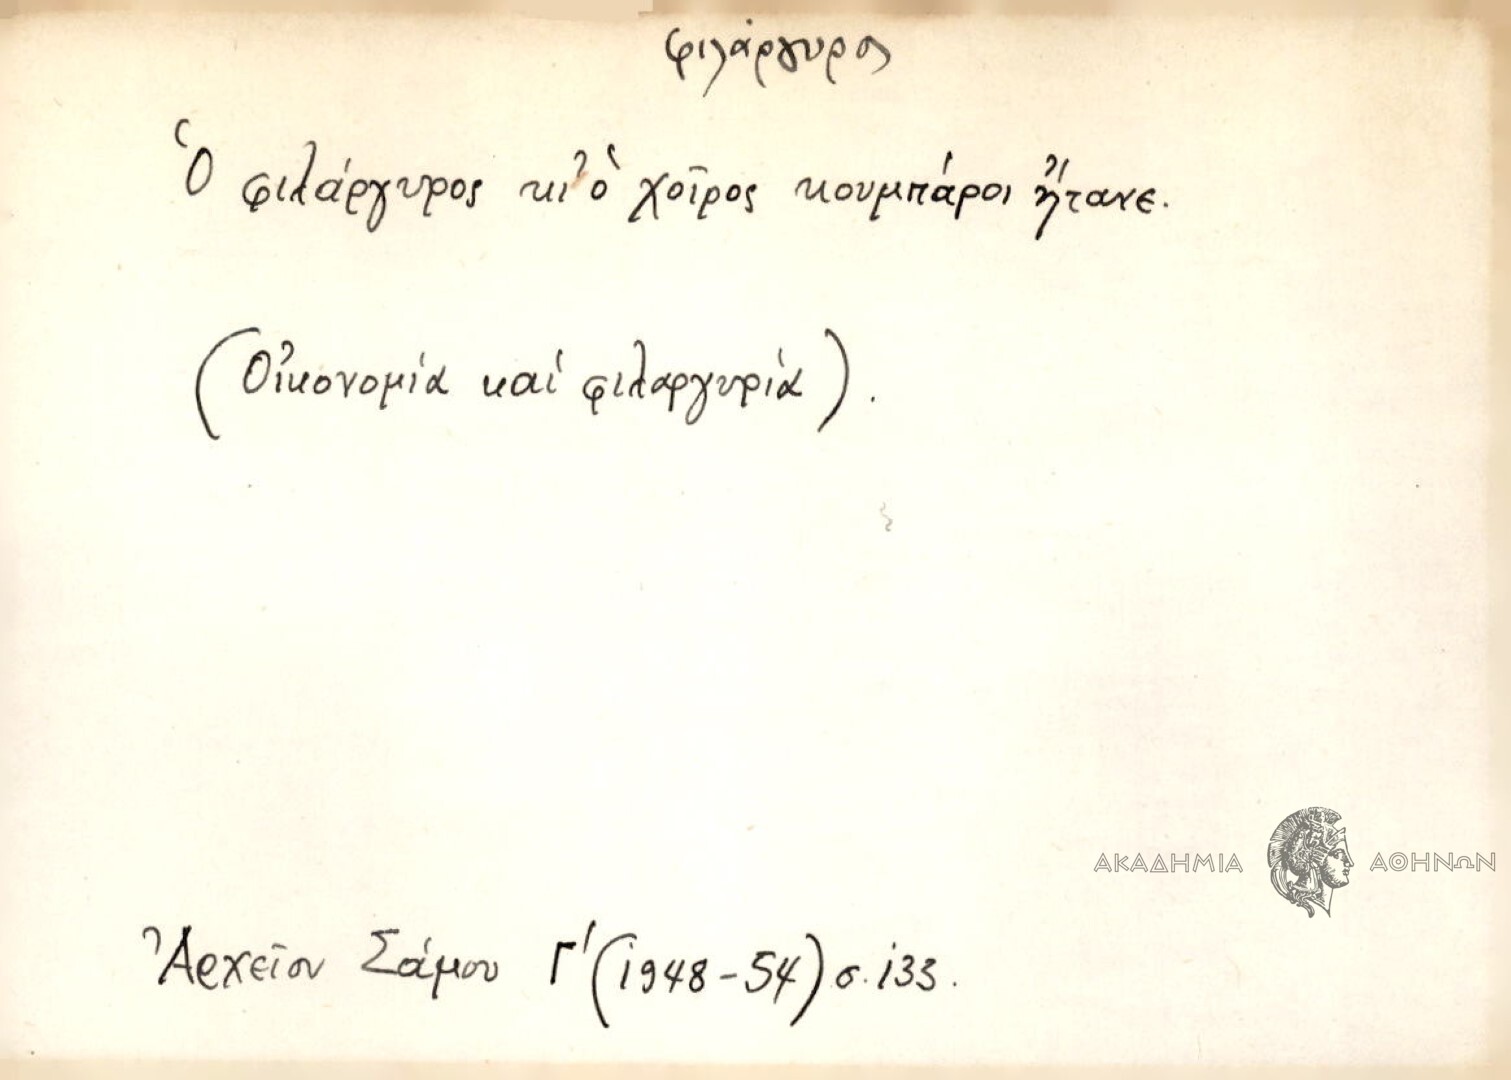 φιλάργυρος
Ὁ φιλάργυρος κι' ὁ χοῖρος κουμπάροι ἤτανε.
(Οἰκονομία καί φιλαργυρία).
ΑΚΑΔΗΜΙΑ ΑΘΗΝΩΝ
Ἀρχεῖον Σάμου Γ' (1948-54) σ. 133.